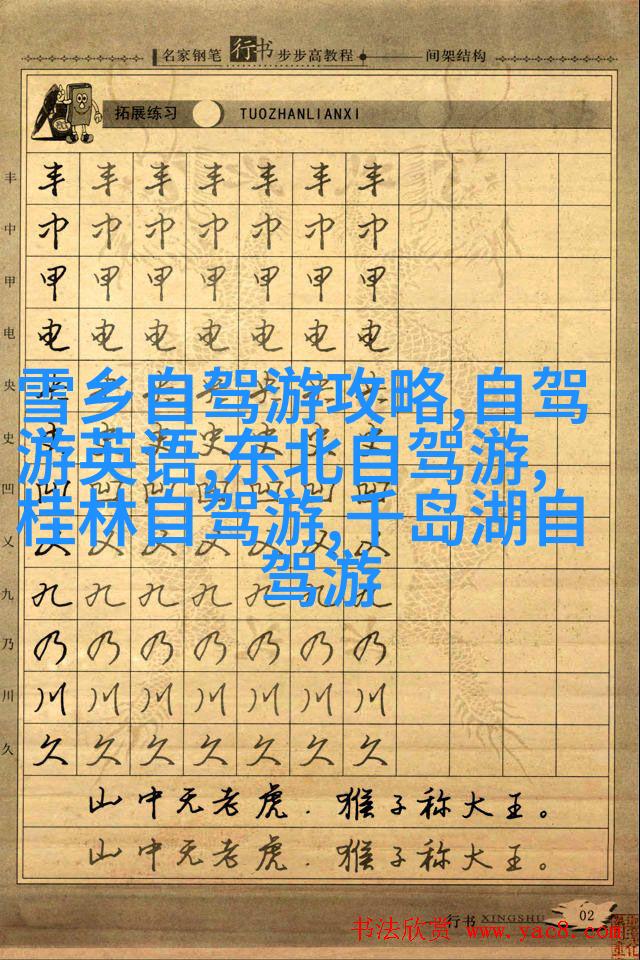 名家钢笔行书步步高教程 间架结构
拓展练习 TUOZHANLIANXI
丰 丰 丰 丰 丰 丰 丰 丰
中 中 中 中 中 中 中 中
甲 甲 甲 甲 甲 甲 甲 甲
电 电 电 电 电 电 电 电
央 央 央 央 央 央 央 央
雪乡自驾游攻略,自驾
史 史 史 史 史 史 史 史
游英语,东北自驾游,
凹 凹 凹 凹 凹 凹 凹 凹
桂林自驾游,千岛湖自
乂 乂 乂 乂 乂 乂 乂 乂
驾游
九 九 九 九 九 九 九 九
乃 乃 乃 乃 乃 乃 乃 乃
川 川 川 川 川 川 川 川
久 久 久 久 久 久 久 久
山中无老虎．猴子称大王。
山中无老虎．猴子称大王。
行书 XINGSHU 02
书法欣赏 www.yac8.com